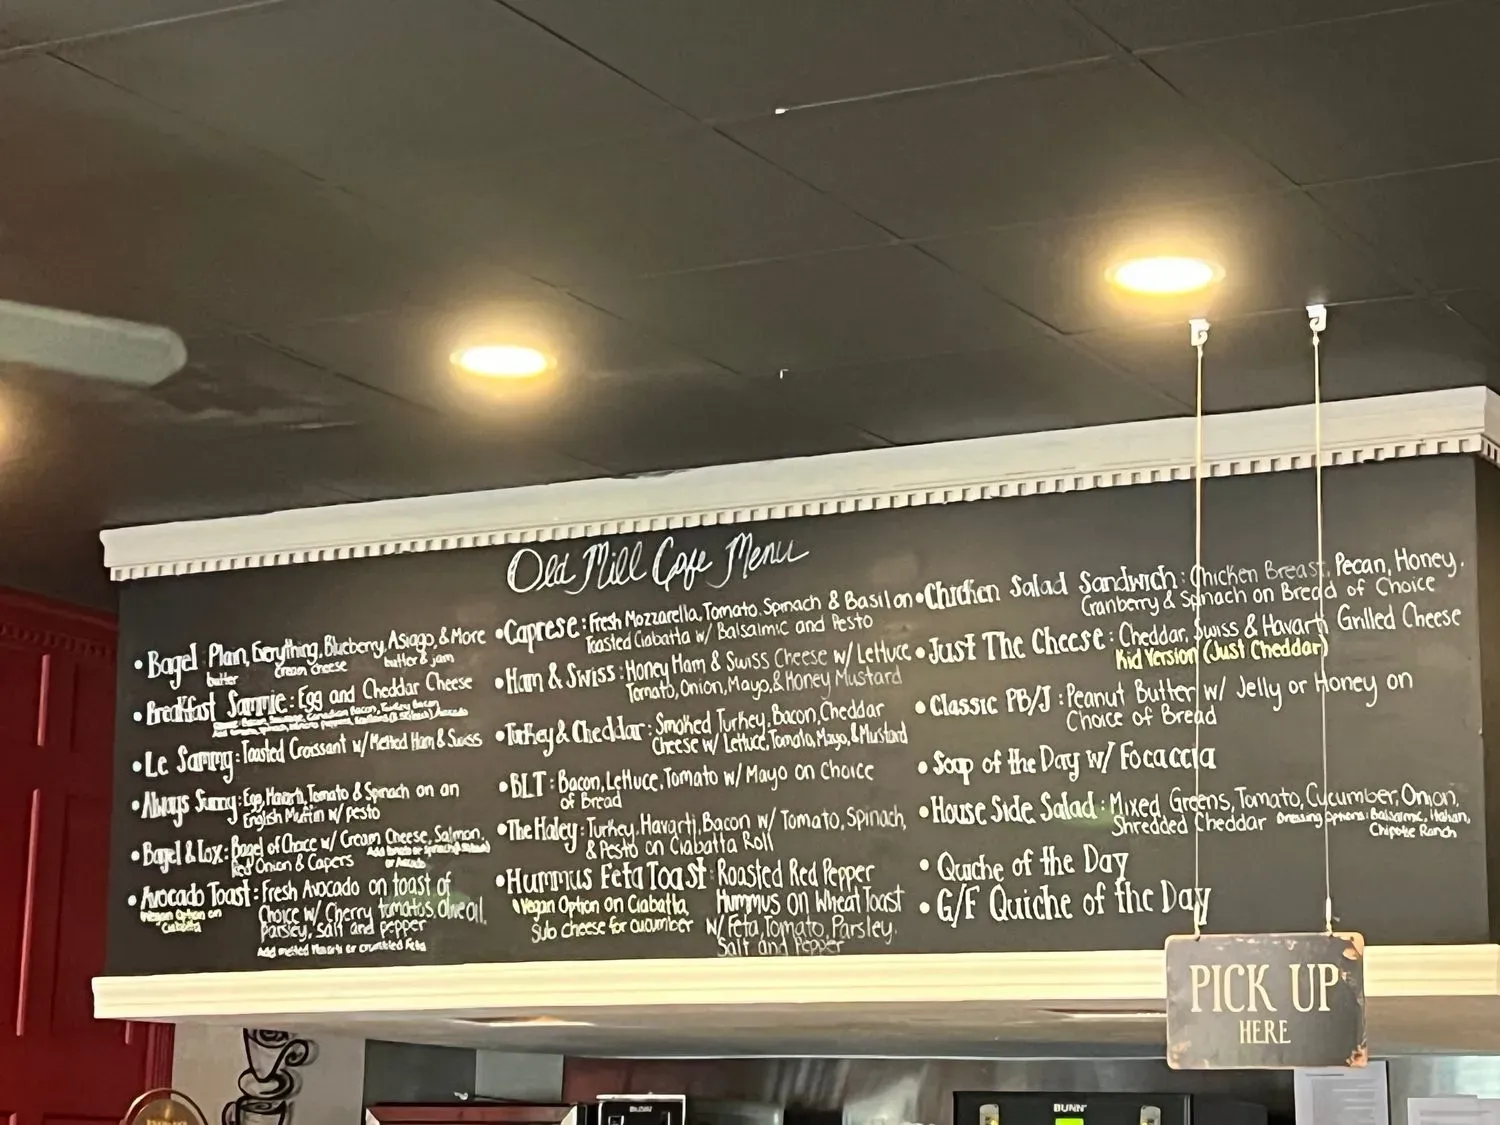 Old Mill Cafe Menu
• Bagel Plain, Everything, Blueberry, Asiago, & More
butter cream cheese butter & jam
• Breakfast Sammie: Egg and Cheddar Cheese
• Le Sammy: Toasted Croissant w/ Melted Ham & Swiss
• Always Sunny: Egg, Havarti, Tomato & Spinach on an
English Muffin w/ pesto
• Bagel & Lox: Bagel of Choice w/ Cream Cheese, Salmon,
Red Onion & Capers
• Avocado Toast: Fresh Avocado on toast of
Choice w/ Cherry tomatos, olive oil,
Parsley, salt and pepper
Vegan Option on
Ciabatta
Add melted Havarti or crumbled Feta
• Caprese: Fresh Mozzarella, Tomato, Spinach & Basil on
Toasted Ciabatta w/ Balsalmic and Pesto
• Ham & Swiss: Honey Ham & Swiss Cheese w/ Lettuce
Tomato, Onion, Mayo, & Honey Mustard
• Turkey & Cheddar: Smoked Turkey, Bacon, Cheddar
Cheese w/ Lettuce, Tomato, Mayo, & Mustard
• BLT: Bacon, Lettuce, Tomato w/ Mayo on Choice
of Bread
• The Haley: Turkey, Havarti, Bacon w/ Tomato, Spinach,
& Pesto on Ciabatta Roll
• Hummus Feta Toast: Roasted Red Pepper
Hummus on Wheat Toast
w/ Feta, Tomato, Parsley,
Salt and Pepper
Vegan Option on Ciabatta
Sub cheese for cucumber
• Chicken Salad Sandwich: Chicken Breast, Pecan, Honey,
Cranberry & Spinach on Bread of Choice
• Just The Cheese: Cheddar, Swiss & Havarti Grilled Cheese
Kid Version (Just Cheddar)
• Classic PB/J: Peanut Butter w/ Jelly or Honey on
Choice of Bread
• Soup of the Day w/ Focaccia
• House Side Salad: Mixed Greens, Tomato, Cucumber, Onion,
Shredded Cheddar Dressing Options: Balsalmic, Italian,
Chipotle Ranch
• Quiche of the Day
• G/F Quiche of the Day
PICK UP
HERE
BUNN